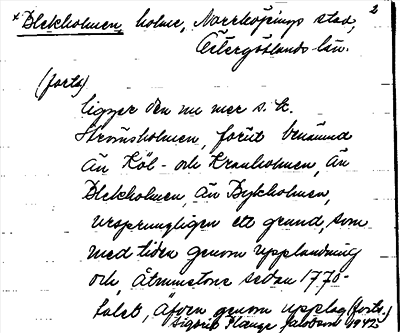 2
*Blekholmen, holme, Norrköpings stad,
Östergötlands län.
(forts)
ligger den nu mer s. k.
Strömsholmen, förut benämnd
än Köl- och Kranholmen, än
Blekholmen, än Bykholmen,
ursprungligen ett grund, som
med tiden genom upplandning
och, åtminstone sedan 1770-
talet, äfven genom upplag (forts.)
Sigurd Jakobson 1942